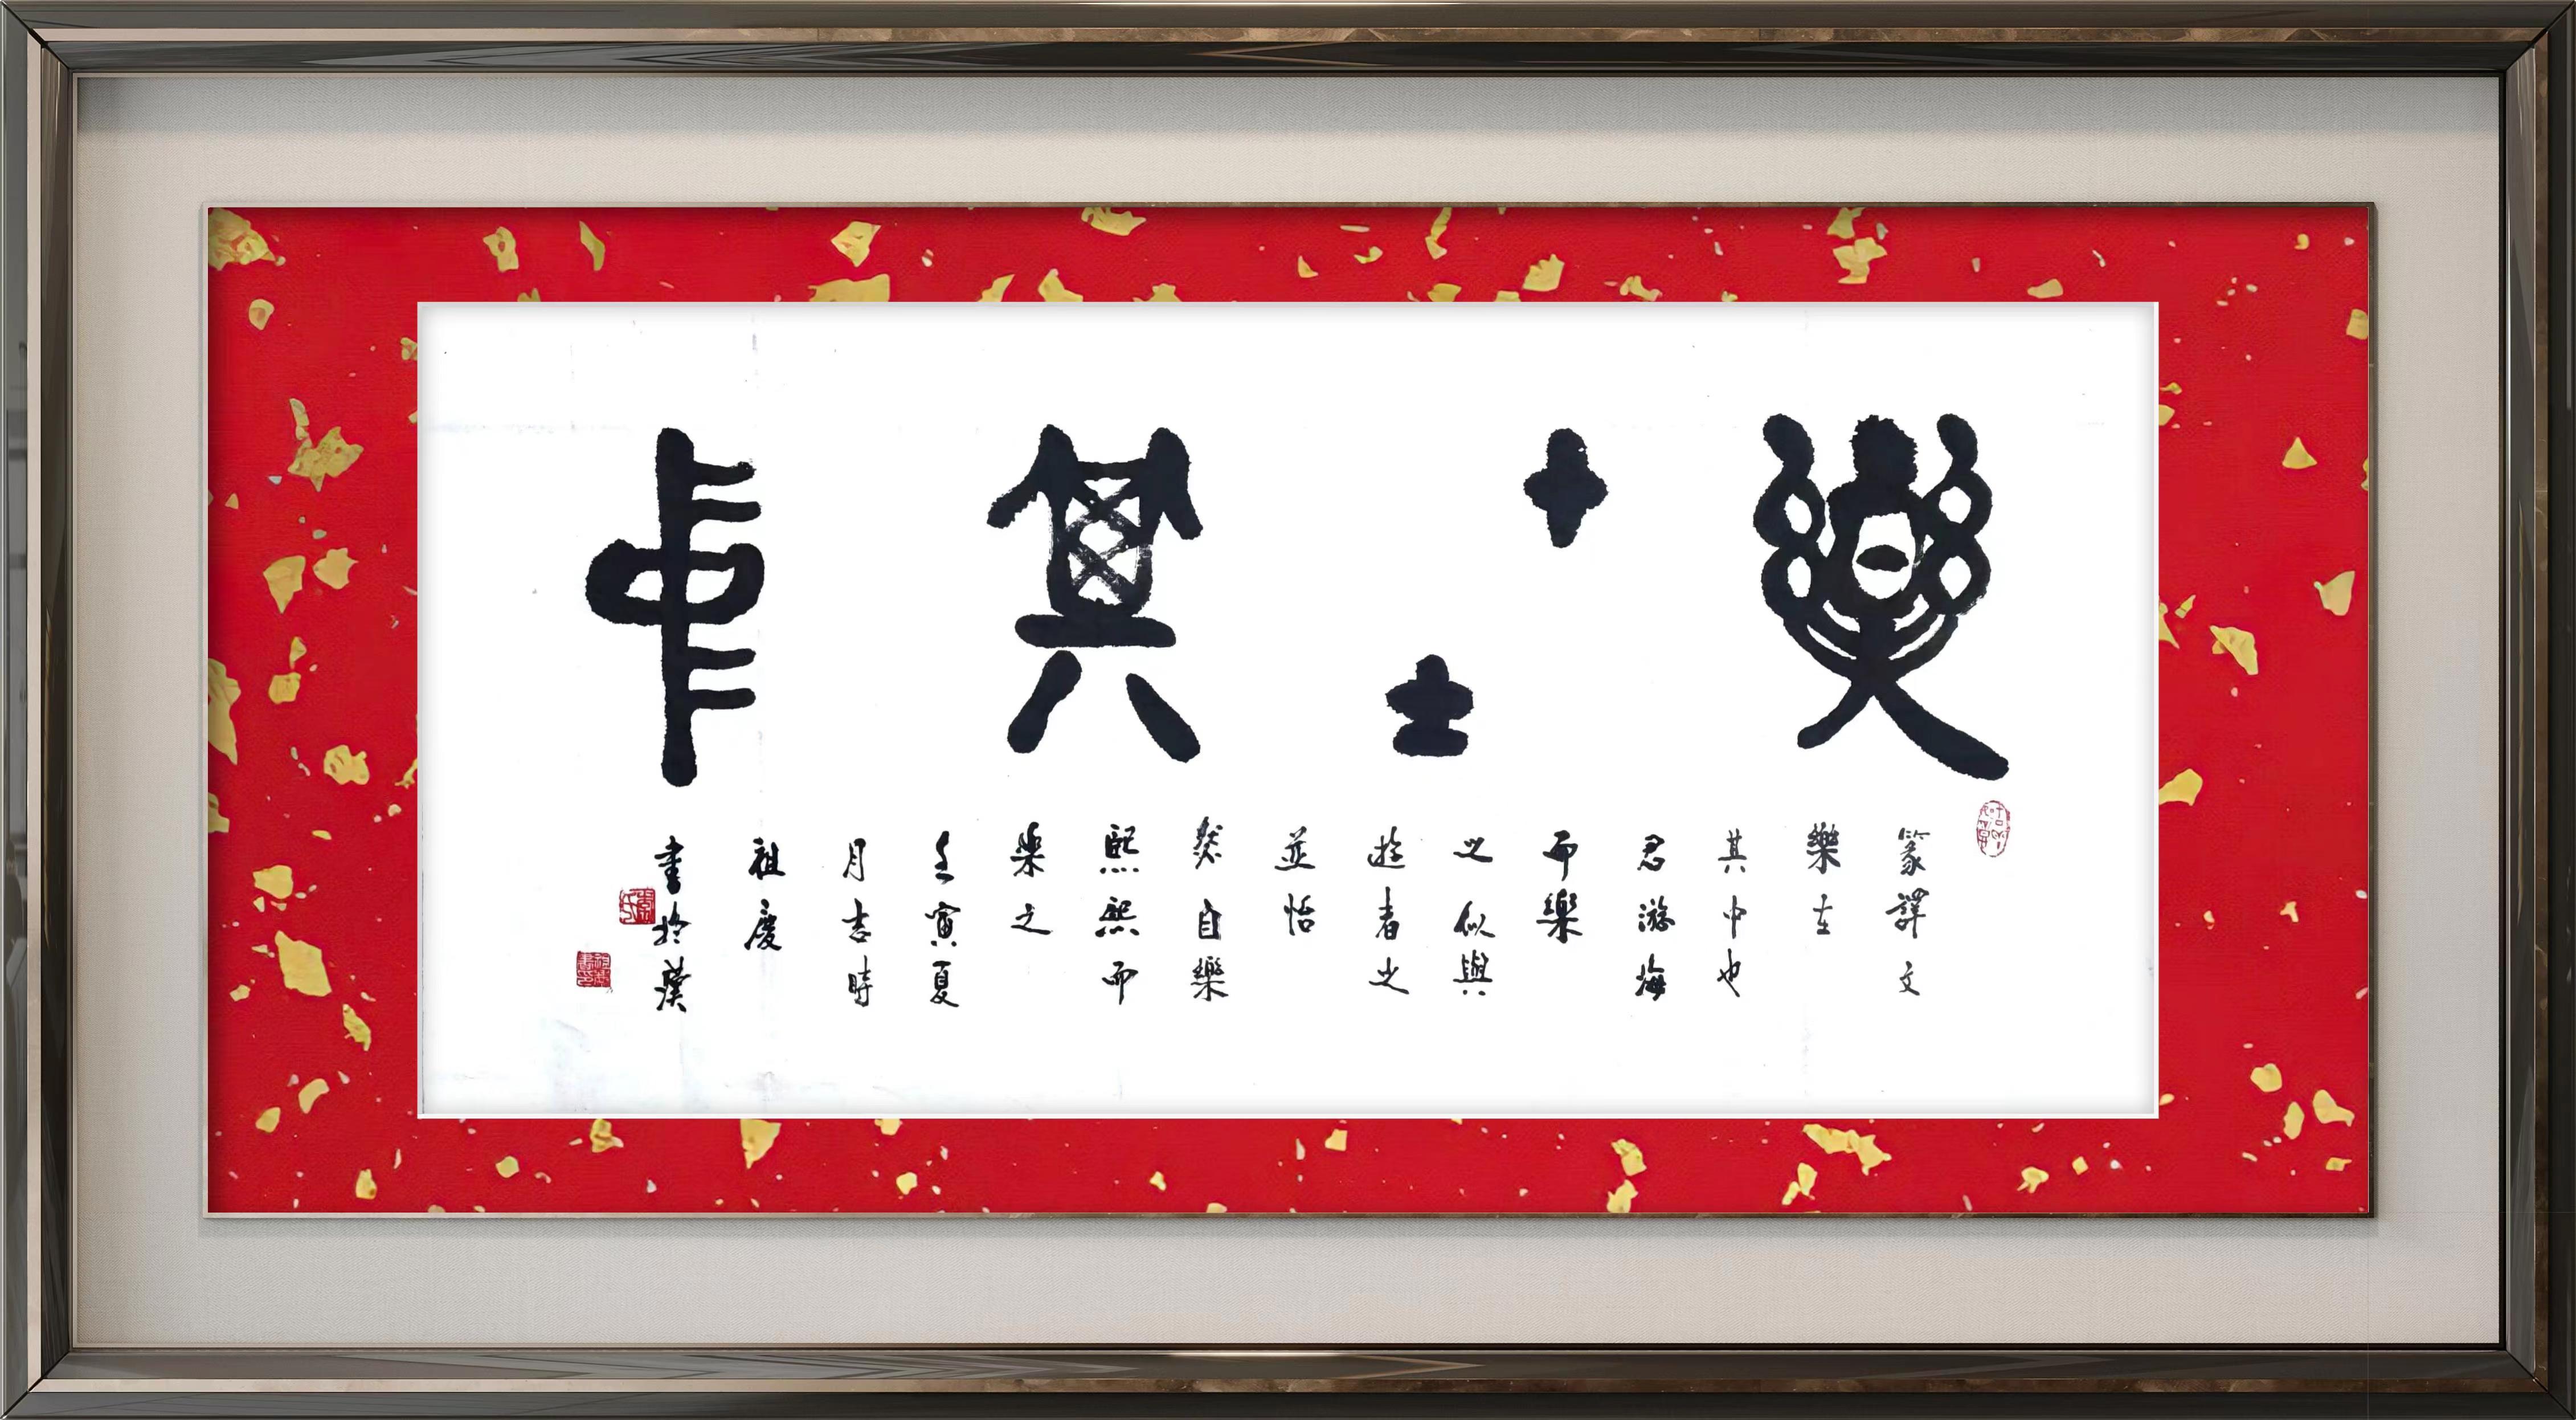 樂在其中
篆譯文
樂在
其中也
君游海
而樂
之似與
遊者之
並怡
然自樂
熙熙而
樂之
壬寅夏
月吉時
祖慶
書於漢